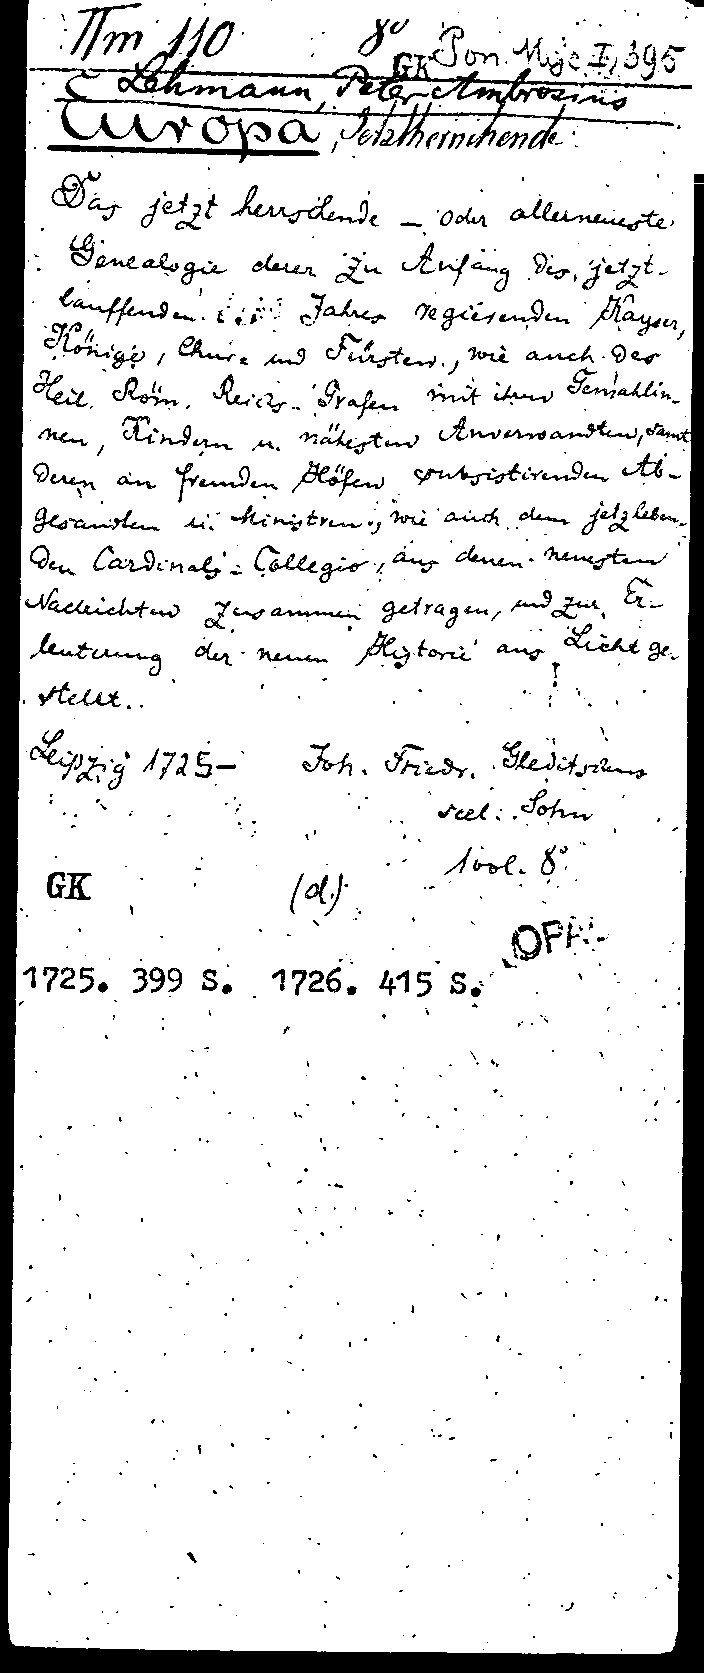 IIm 110 8° GK Pon. Mise I, 395
Lehmann, Peter Ambrosius
Europa, Jetztherrschende
Das jetzt herrschende — oder allerneueste
Genealogie derer zu Anfang des jetzt-
lauffenden ... Jahres regierenden Kayser,
Könige, Chur- und Fürsten, wie auch des
Heil. Röm. Reichs-Grafen mit ihren Gemahlin-
nen, Kindern u. nähesten Anverwandten, samt
deren an fremden Höfen subsistirenden Ab-
gesandten u. Ministren, wie auch dem jetzleben-
den Cardinals-Collegio, aus denen neuesten
Nachrichten zusammen getragen, und zur Er-
leuterung der neuen Historie ans Licht ge-
stellt.
Leipzig 1725— Joh. Friedr. Gleditschens
seel. Sohn
1 vol. 8°
GK (d.)
1725. 399 S. 1726. 415 S.